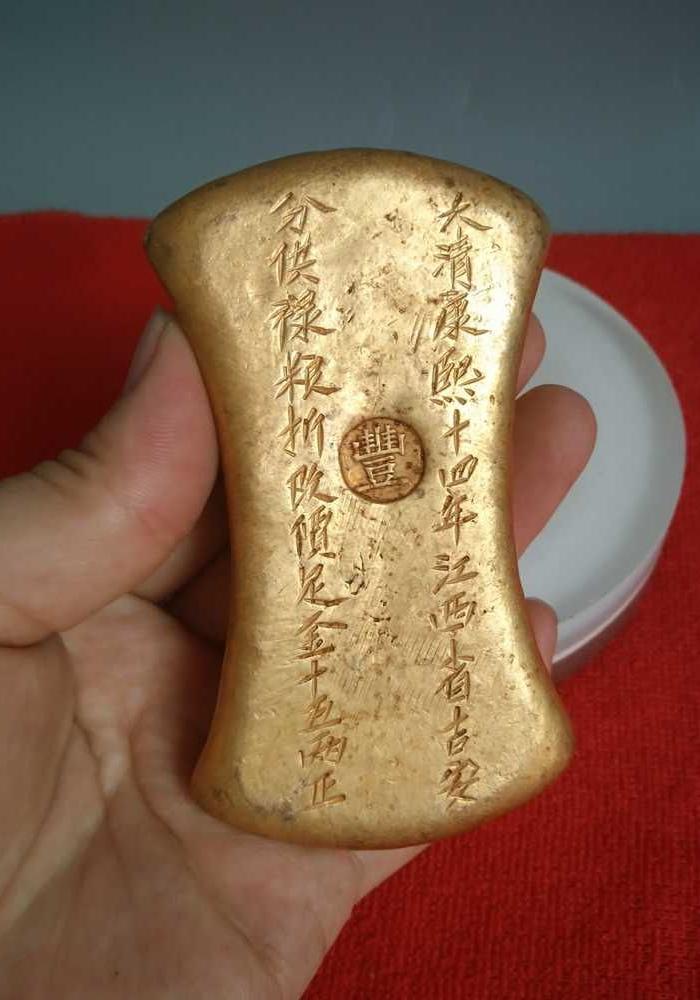 大清康熙十四年江西省吉安
豐
分供禄粮折改值足金十五两正